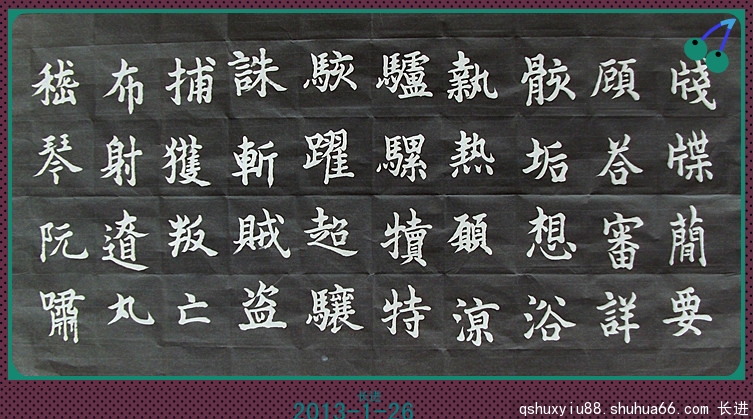 牋牒簡要
顧荅審詳
骸垢想浴
執熱願涼
驢騾犢特
駭躍超驤
誅斬賊盗
捕獲叛亡
布射遼丸
嵇琴阮嘯
长进
2013-1-26
qshuxyiu88.shuhua66.com 长进